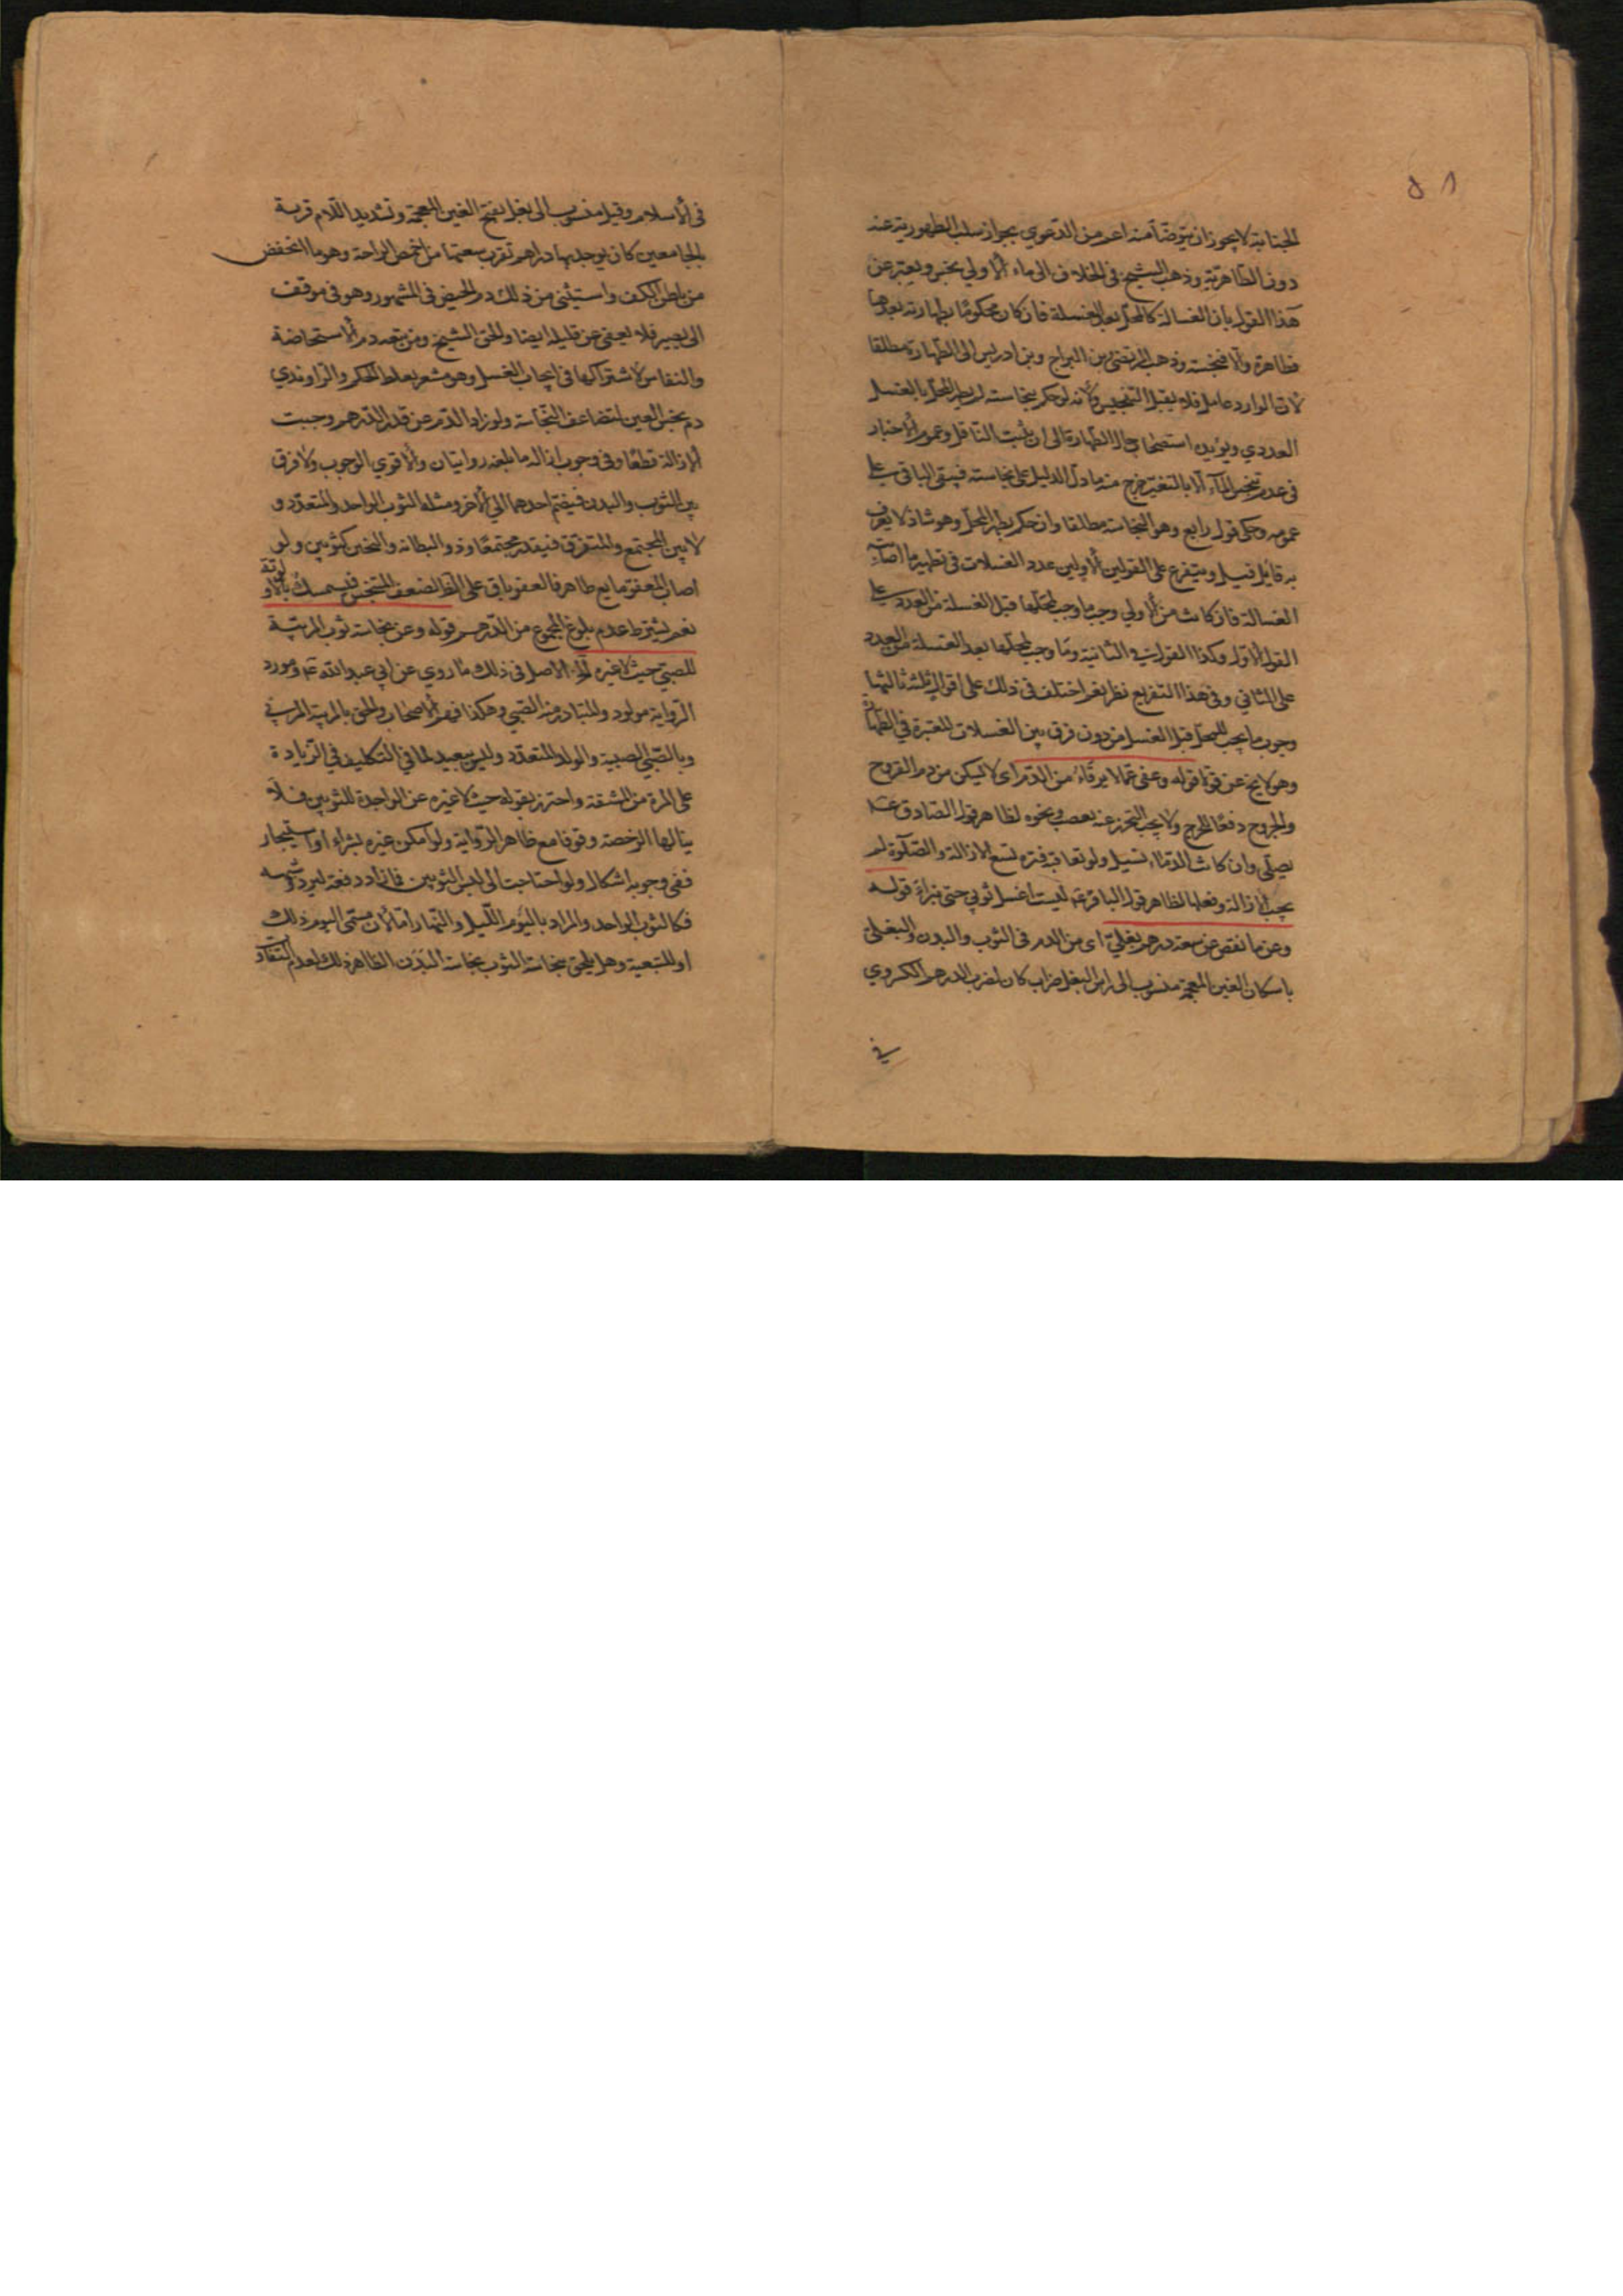 ٥١
الجنابة لا يجوز ان يتوضأ منه اعم من الدعوي بجواز سلب الطهورية عنه
دون الطاهرية وذهب الشيخ في الخلاف الى ماء الاولي نجس ويعبر عن
هذا القول بان الغسالة كالمحل بعد الغسلة فان كان محكومًا بطهارته بعدها
فطاهرة والا فنجسة وذهب المرتضى وبن البراج وبن ادريس الى الطهارة مطلقا
لان الوارد عامل فلا يقبل التنجيس ولانه لو حكم بنجاسته لم يطهر المحل بالغسل
العددي ويؤيده استصحاب حال الطهارة الى ان يثبت الناقل وعموم الاخبار
في عدم تنجس الماء الا بالتغير خرج منه ما دل الدليل على نجاسته فيبقى الباقي على
عمومه وحكى قول رابع وهو النجاسة مطلقا وان حكم بطهر المحل وهو شاذ لا يعرف
به قايل قبيل ويتفرع على القولين الاولين عدد الغسلات في تطهير ما اصابته
الغسالة فان كانت من الاولي وجب ما وجب لمحلها قبل الغسلة من العدد على
القول الاول وكذا القول في الثانية وما وجب لمحلها بعد الغسلة من العدد
على الثاني وفي هذا التفريع نظر نعم اختلف في ذلك على اقوال ثلثة ثالثها
وجوب ما يجب للمحل قبل الغسل من دون فرق بين الغسلات المعتبرة في الطهارة
وهو لا يخ عن قوة قوله وعفى عما لا يرقاء من الدم اى لا يسكن من دم القروح
والجروح دفعًا للحرج ولا يجب التحرز عنه بعصب ونحوه لظاهر قول الصادق عم
يصلى وان كانت الدماء تسيل ولو تعاقبه فترة تسع الازالة والصلوة لم
يجب الازالة وفعلها لظاهر قول الباقر عم لست اغسل ثوبي حتى تبراء قوله
وعن ما نقص عن سعة درهم بغلي اى من الدم في الثوب والبدن والبغلي
باسكان الغين المعجمة منسوب الى راس البغل ضراب كان لضرب الدرهم الكسروي
في
في الاسلام وقيل منسوب الى بغل بفتح الغين المعجمة وتشديد اللام قرية
بالجامعين كان يوجد بها دراهم تقرب سعتها من اخمص الراحة وهو ما انخفض
من باطن الكف واستثنى من ذلك دم الحيض في المشهور وهو في موقف
الى بصير فلا يعفى عن قليله ايضا والحق الشيخ ومن تبعه دم الاستحاضة
والنفاس لاشتراكها في ايجاب الغسل وهو مشعر بغلط الحكم والراوندي
دم نجس العين لتضاعف النجاسة ولو زاد الدم عن قدر الدرهم وجبت
الازالة قطعًا وفي وجوب ازالة ما بلغه روايتان والاقوي الوجوب ولا فرق
بين الثوب والبدن فيضم احدهما الى الاخر ومثله الثوب الواحد والمتعدد و
لا بين المجتمع والمتفرق فيقدر مجتمعًا وذو البطانه والثخين كثوبين ولو
اصاب المعفو مايع طاهر فالعفو باق على الظ لضعف المتنجس فيمسك بالاولوية
نعم يشترط عدم بلوغ المجموع من الدرهم قوله وعن نجاسة ثوب المربية
للصبي حيث لا غيره الاصل في ذلك ما روي عن ابي عبد الله عم ومورد
الرواية مولود والمتبادر منه الصبي وهكذا فهم الاصحاب والحق بالمربية المربي
وبالصبي الصبية والولد المتعدد وليس ببعيد لما في التكليف في الزيادة
على المرة من المشقة واحترز بقوله حيث لا غيره عن الواجدة للثوبين فلا
ينالها الرخصة وقوفا مع ظاهر الرواية ولو امكن غيره بشراء او استيجار
ففي وجوبه اشكال ولو احتاجت الى لبس الثوبين فما زاد دفعة لبرد وشبهه
فكالثوب الواحد والمراد باليوم الليل والنهار اما لان مسمى اليوم ذلك
او للتبعية وهل يلحق بنجاسة الثوب نجاسة البدن الظاهر ذلك لعدم انتقاد